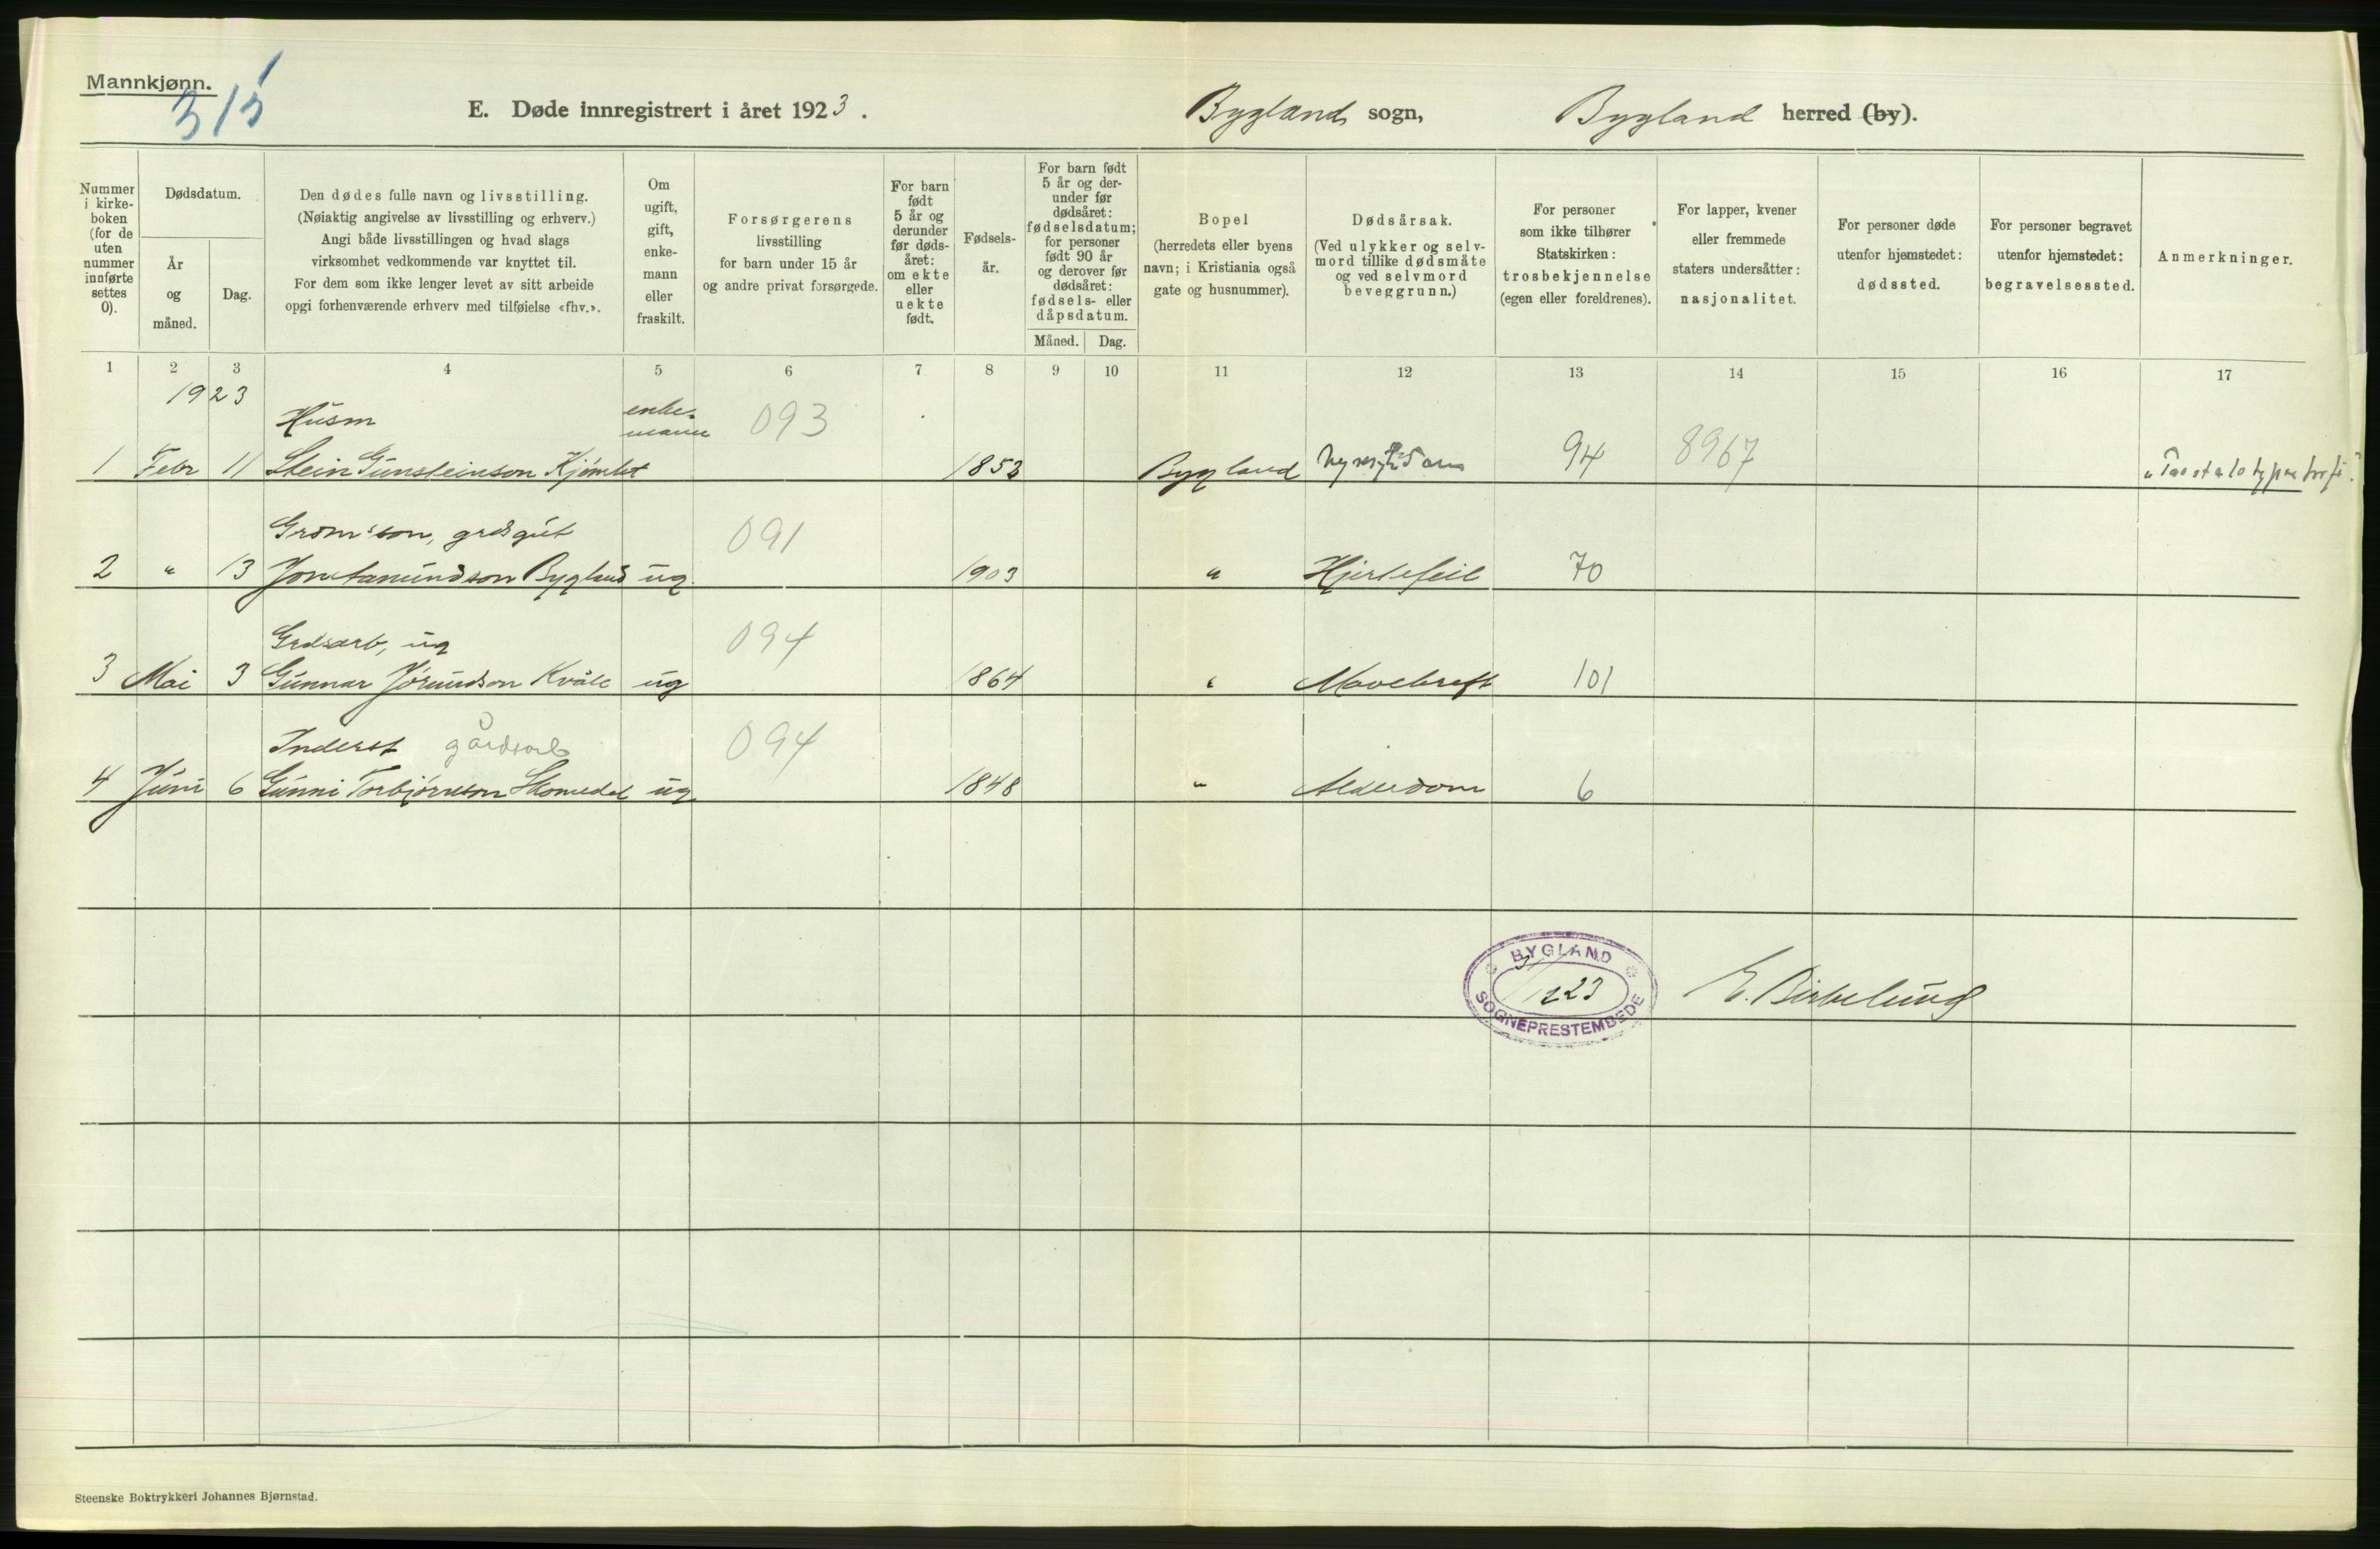 Mannkjønn.
315
E. Døde innregistrert i året 1923.
Bygland sogn,
Bygland herred (by).
Nummer i kirke-boken (for de uten nummer innførte settes 0).
Dødsdatum.
År og måned.
Dag.
Den dødes fulle navn og livsstilling.
(Nøiaktig angivelse av livsstilling og erhverv.)
Angi både livsstillingen og hvad slags
virksomhet vedkommende var knyttet til.
For dem som ikke lenger levet av sitt arbeide
opgi forhenværende erhverv med tilføielse «fhv.».
Om ugift, gift, enke-mann eller fraskilt.
Forsørgerens
livsstilling
for barn under 15 år
og andre privat forsørgede.
For barn født 5 år og derunder før døds-året: om ekte eller uekte født.
Fødsels-år.
For barn født 5 år og der-under før dødsåret: fødselsdatum; for personer født 90 år og derover før dødsåret: fødsels- eller dåpsdatum.
Måned.
Dag.
Bopel
(herredets eller byens
navn; i Kristiania også
gate og husnummer).
Dødsårsak.
(Ved ulykker og selv-
mord tillike dødsmåte
og ved selvmord
beveggrunn.)
For personer
som ikke tilhører
Statskirken:
trosbekjennelse
(egen eller foreldrenes).
For lapper, kvener
eller fremmede
staters undersåtter:
nasjonalitet.
For personer døde
utenfor hjemstedet:
dødssted.
For personer begravet
utenfor hjemstedet:
begravelsessted.
Anmerkninger.
1 2 3 4 5 6 7 8 9 10 11 12 13 14 15 16 17
1923
Husm enke-mann 093
1 Febr 11 Stein Gunsteinson 1853 Bygland 94 8967
grdsgut 091
2 " 13 Bygland ug. 1903 " Hjertefeil 70
Grdsarb, ug 094
3 Mai 3 Gunnar Jørundson Kvåle ug 1864 " Mavekreft 101
Inderst gårdsarb 094
4 Juni 6 Gunni Torbjørnson Skomedal ug. 1848 " Alderdom 6
BYGLAND
SOGNEPRESTEMBEDE
23
E. Birkelund
Steenske Boktrykkeri Johannes Bjørnstad.